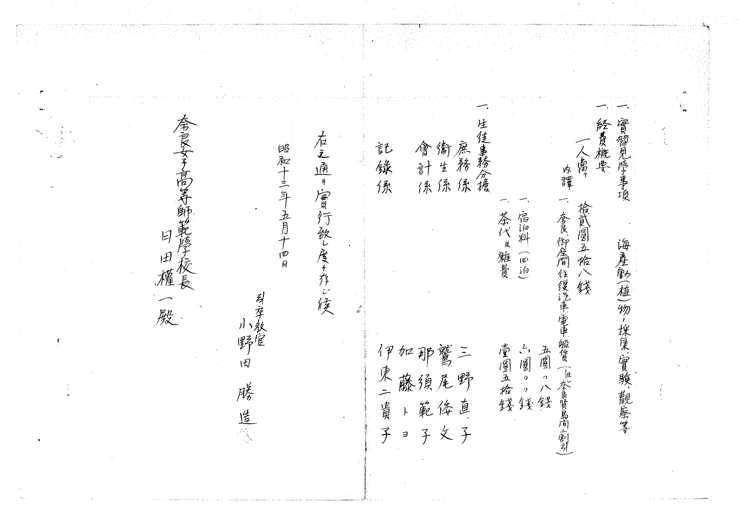 一、實習見學事項　海産動（植）物ノ採集實驗觀察等
一、経費概要
一人當リ　拾貳圓五拾八錢
内譯
一、奈良、御座間往復汽車電車船賃（但奈良賢島間二割引）
五圓〇八錢
一、宿泊料（四泊）　六圓〇〇錢
一、茶代及雑費　壹圓五拾錢
一、生徒事務分擔
庶務係　三野直子
衛生係　鷲尾倭文
會計係　那須範子
加藤トヨ
記錄係　伊東二貴子
右之通リ實行致シ度ク存ジ候
昭和十三年五月十四日
引率教官
小野田勝造
奈良女子高等師範學校長
目田權一殿